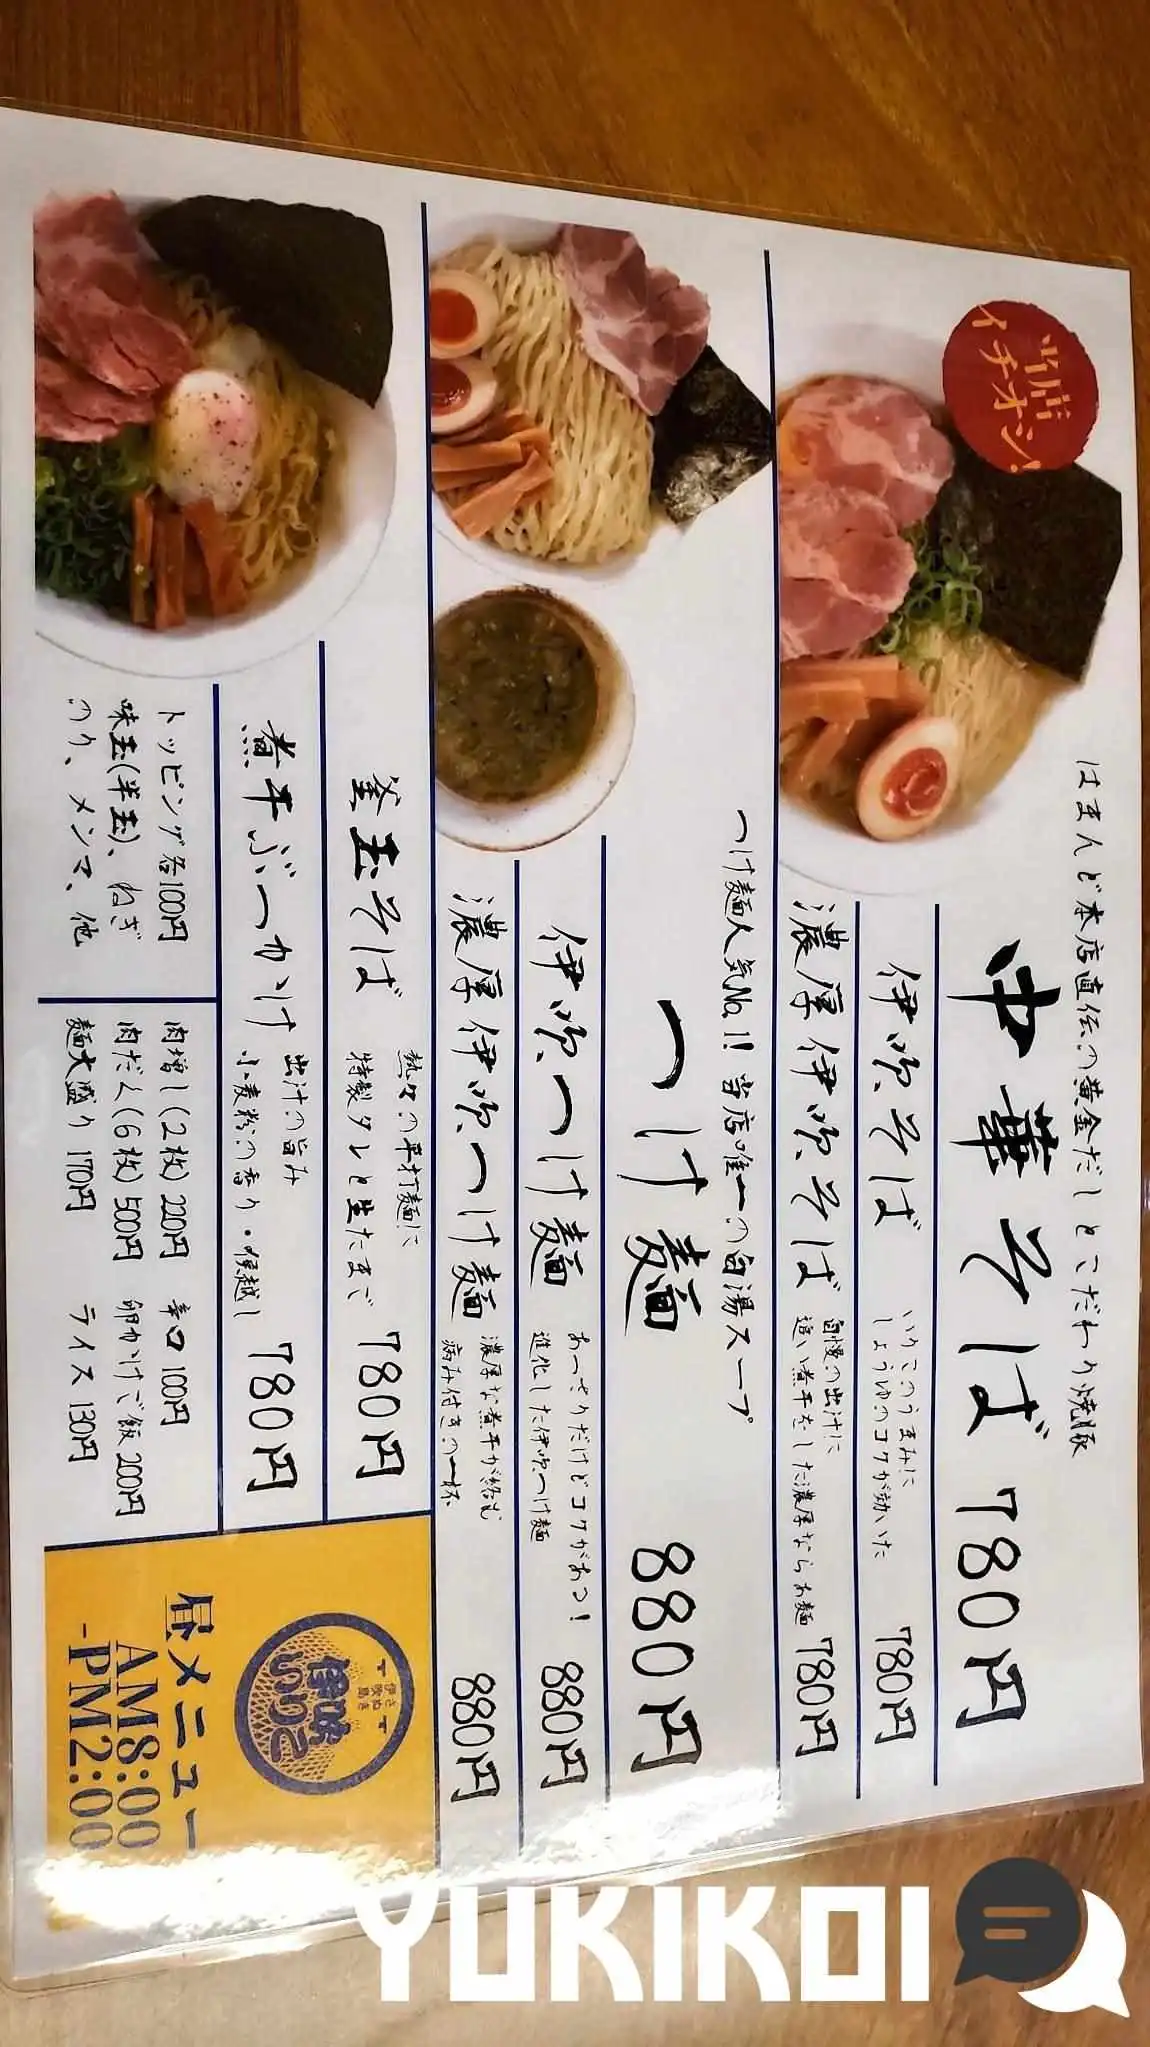 当店
イチオシ!
はまんど本店直伝の黄金だしとこだわり焼豚
中華そば 780円
伊吹そば いりこのうまみに
しょうゆのコクが効いた 780円
濃厚伊吹そば 自慢の出汁に
追い煮干をした濃厚ならお麺 780円
つけ麺人気No.1!! 当店唯一の白湯スープ
つけ麺 880円
伊吹つけ麺 あっさりだけどコクがある!
進化した伊吹つけ麺 880円
濃厚伊吹つけ麺 濃厚な煮干が絡む
病み付きの一杯 880円
釜玉そば 熱々の平打麺に
特製タレと生たまご 780円
煮干ぶっかけ 出汁の旨み
小麦粉の香り・喉越し 780円
トッピング各100円
味玉(半玉)、ねぎ
のり、メンマ、他
肉増し(2枚) 220円 辛口 100円
肉だく(6枚) 500円 卵かけご飯 200円
麺大盛り 170円 ライス 130円
伊吹
いりこ
昼メニュー
AM8:00
-PM2:00
YUKIKOI